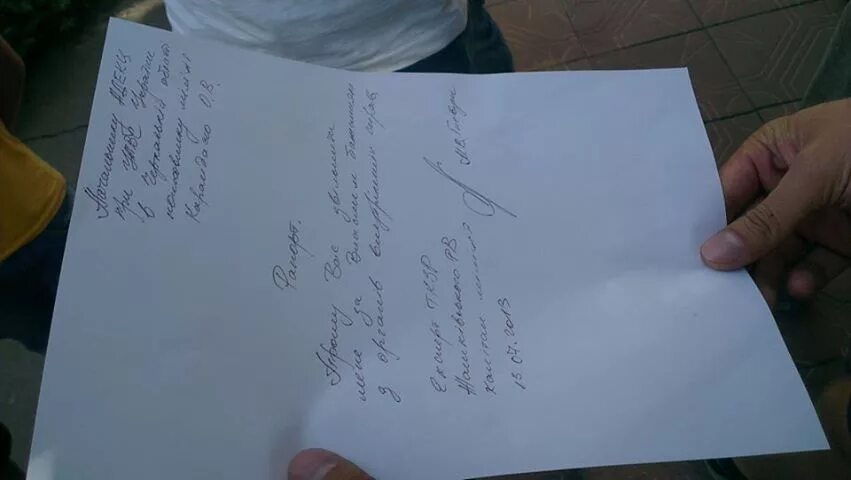 Начальнику НДЕКЦ
при УМВС України
в Черкаській області
полковнику міліції
Карандашо О.В.
Рапорт.
Прошу Вас звільнити
мене за власним бажанням
з органів внутрішніх справ
Експерт ТКЗР
Маньківського РВ
капітан міліції
15.07.2013